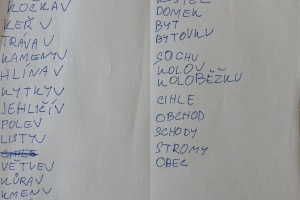 KOČKA V
KEŘ V
TRÁVA V
KAMENY V
HLÍNA V
KYTKY V
JEHLIČÍ V
POLE V
LISTY V
VĚTVE V
KŮRA V
KMEN V
DOMEK
BYT
BYTOVKU
SOCHU
KOLOBĚŽKU
CIHLE
OBCHOD
SCHODY
STROMY
OBEC